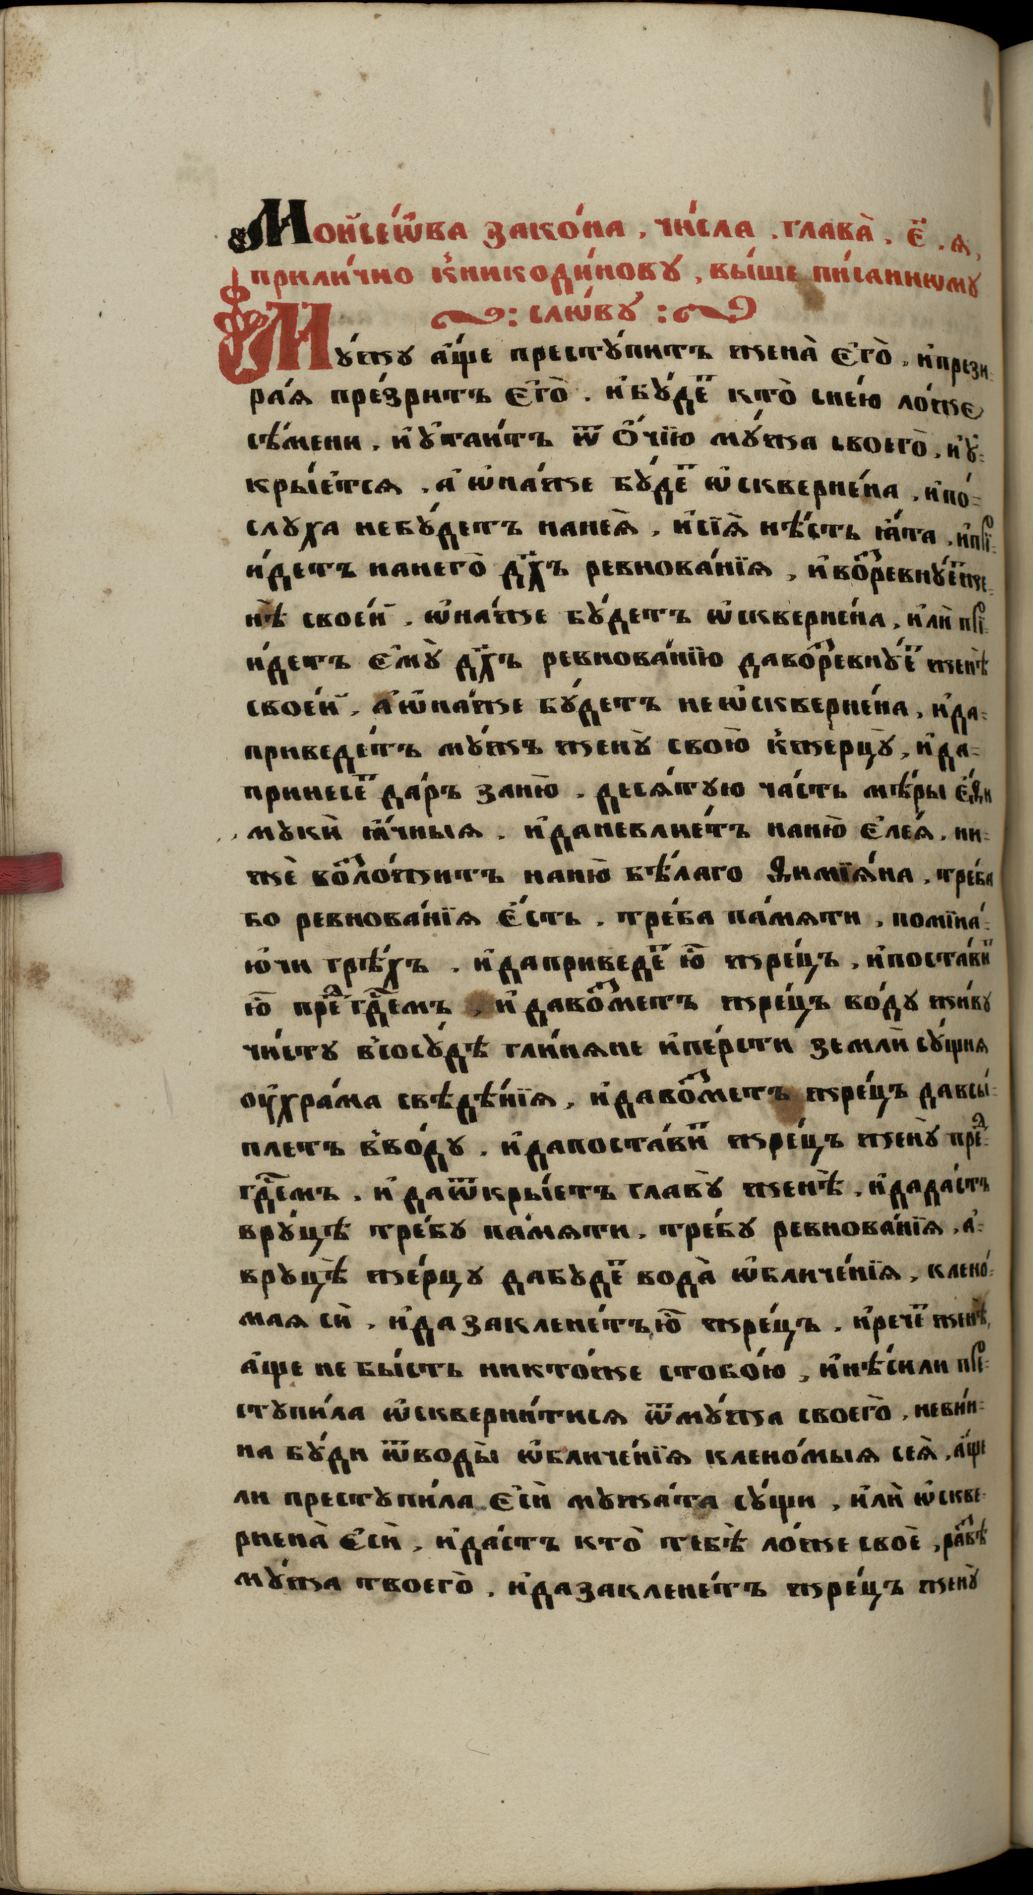 Мойсеѡ́ва зако́на . чи́сла . глава̀ . є҃ . ѧ ,
прили́чно кн҆икоди́мову , вы́ше пи́санному
: слѡ́ву :
Му́жу а҆́ще престу́питъ жена̀ є҆го̀ . и҆прези
ра́ѧ пре́зритъ є҆го̀ . и҆бу́деⷮ кто̀ сне́ю ло́же
сѣ́мени . и҆у҆таи́тъ ѿ ѻ҆́чїю му́жа своего̀ . и҆у҆
кры́етсѧ . а҆ ѡ҆на́же бу́деⷮ ѡ҆скверне́на , и҆по́
слуха небу́детъ нанеѧ̀ , и҆сїѧ̀ нѣ́сть ꙗ҆́та . и҆прї
и́детъ нанего̀ дх҃ъ ревнова́нїѧ , и҆воⷥревну́еⷮ же
нѣ̀ свое́й . ѡ҆на́же бу́детъ ѡ҆скверне́на , и҆лѝ прї
и́детъ є҆му̀ дх҃ъ ревнова́нїю давоⷥревну́еⷮ женѣ̀
свое́й , а҆ѡ҆на́же бу́детъ неѡ҆скверне́на , и҆да
приведе́тъ му́жъ жену̀ свою̀ кже́рцу̀ , и҆да
принесеⷮ да́ръ заню̀ . десѧ́тую ча́сть мѣ́ры є҆ѳи
мукѝ ꙗ҆́чныѧ . и҆даневлие́тъ наню̀ є҆ле́ѧ . ни
жѐ воⷥло́житъ наню̀ бѣ́лаго ѳимїѧ́на , тре́ба
бо ревнова́нїѧ є҆́сть . тре́ба па́мѧти , помїна́
ючи грѣ́хъ . и҆даприведеⷮ ю҆̀ жре́цъ , и҆поста́виⷮ
ю҆̀ преⷣ гдⷭ҇емъ , и҆ давоⷥметъ жре́цъ во́ду жи́ву
чи́сту всосу́дѣ гли́нѧне и҆пе́рсти землѝ су́щиѧ
оу҆хра́ма свѣдѣ́нїѧ , и҆давоⷥметъ жре́цъ давсы́
плетъ вво́ду . и҆дапоста́виⷮ жре́цъ жену̀ преⷣ
гдⷭ҇емъ . и҆даѿкры́етъ главу̀ женѣ̀ . и҆дада́стъ
вру́цѣ тре́бу па́мѧти . тре́бу ревнова́нїѧ . а҆
вруцѣ̀ же́рцу дабу́деⷮ вода̀ ѡ҆бличе́нїѧ , клено́
маѧ сѝ . и҆да заклене́тъю҆̀ жре́цъ . и҆рече́ⷮ женѣ̀,
а҆́ще не бы́сть никто́же стобо́ю , и҆нѣ́сили прє
ступи́ла ѡ҆скверни́тисѧ ѿму́жа своего̀ , неви́н
на бу́ди ѿводы̀ ѡ҆бличе́нїѧ клено́мыѧ сеѧ̀ . а҆́ще
ли преступи́ла є҆сѝ мужа́та су́щи , и҆лѝ ѡ҆скве
рнена̀ є҆сѝ , и҆да́стъ кто̀ тебѣ̀ ло́же своѐ , раⷥвѣ
му́жа твоего̀ . и҆дазаклене́тъ жре́цъ жену̀